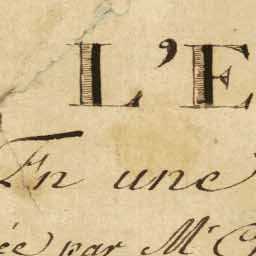 L'E
En une
ée par Mr C